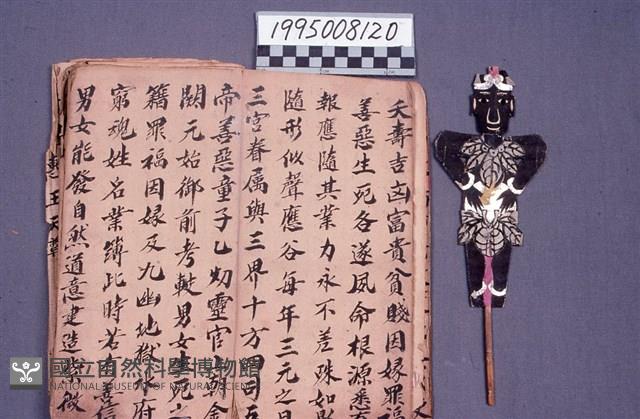 1995008120
夭壽吉凶富貴貧賤因緣罪福
善惡生死各遂夙命根源悉
報應隨其業力永不差殊如影
隨形似聲應谷每年三元之日
三宮眷屬與三界十方司
帝善惡童子乙切靈官朝會
闕元始御前考較男女生死
籍罪福因緣及九幽地獄府
窮魂姓名業簿此時若有善信
男女能發自然道意建造
國立自然科學博物館
NATIONAL MUSEUM OF NATURAL SCIENCE